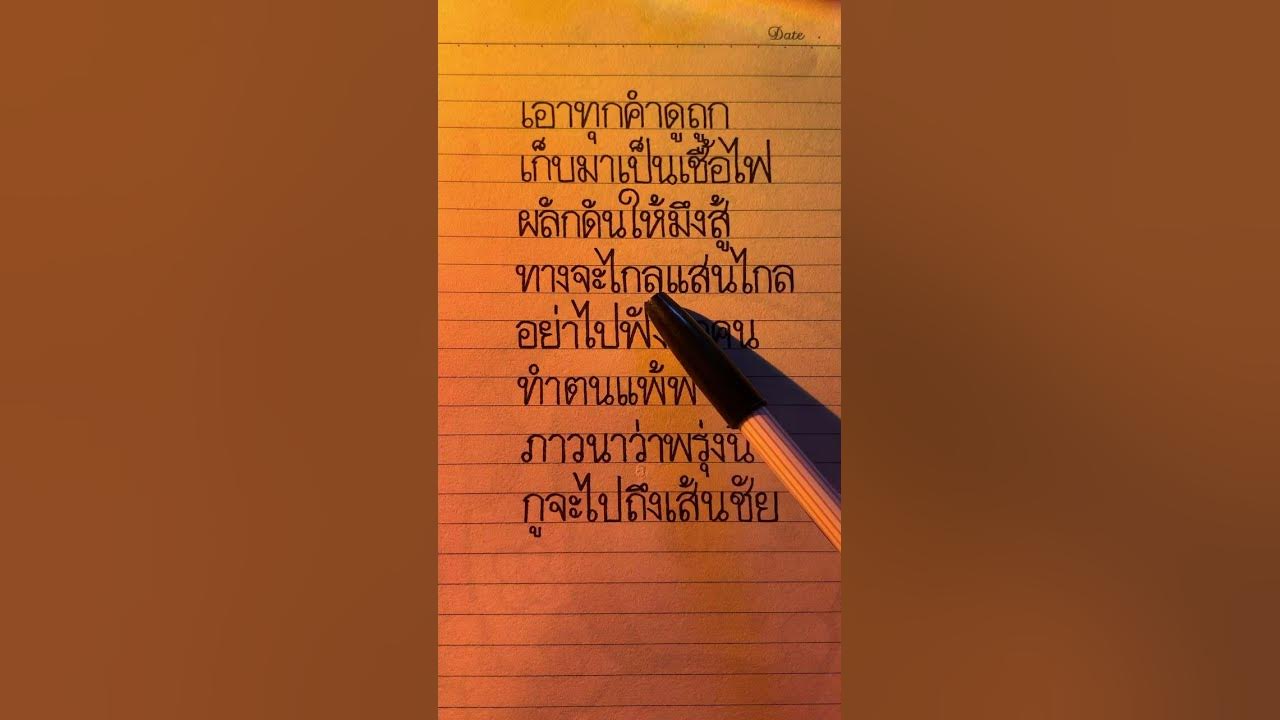 Date
เอาทุกคำดูถูก
เก็บมาเป็นเชื้อไฟ
ผลักดันให้มึงสู้
ทางจะไกลแสนไกล
อย่าไปฟัง คน
ทำตนแพ้พ
ภาวนาว่าพรุ่งนี้
กูจะไปถึงเส้นชัย